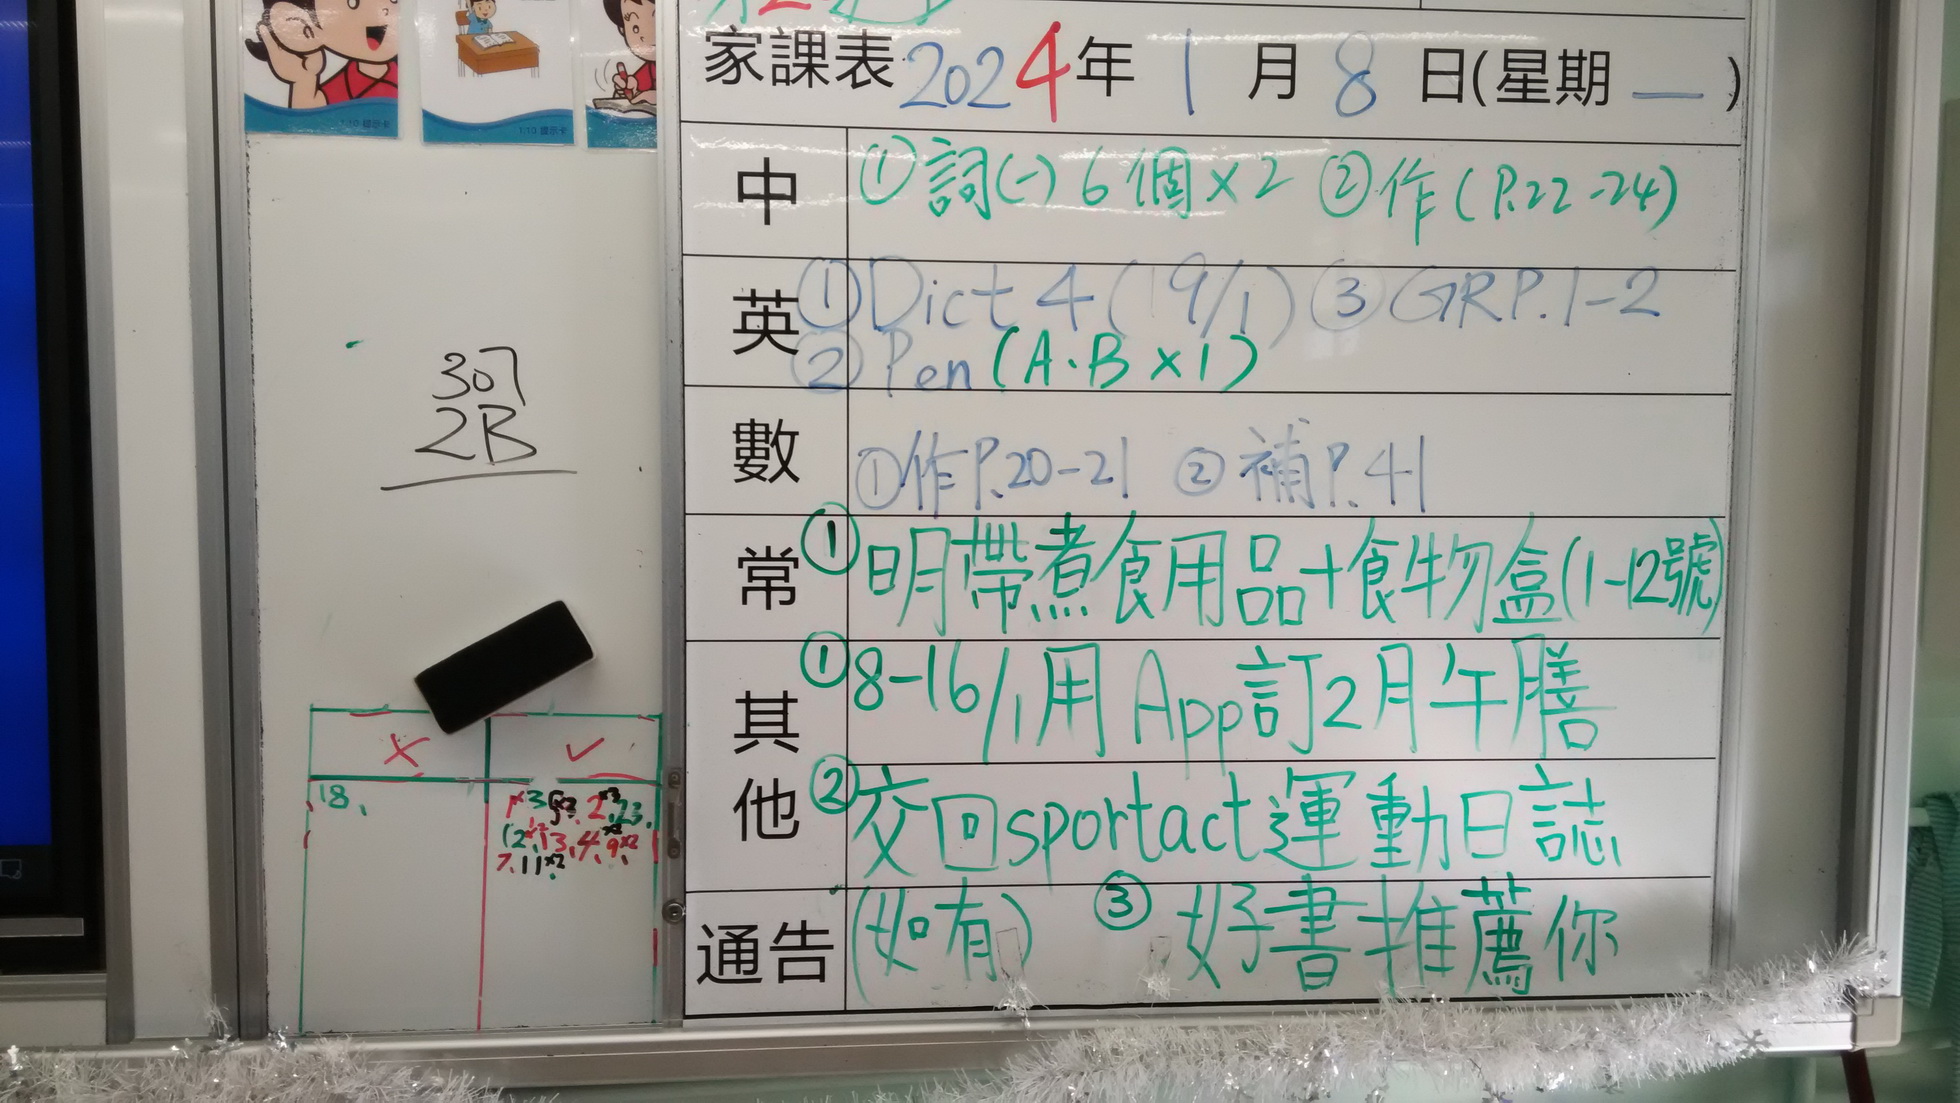 1:10 提示卡
1:10 提示卡
家課表 2024年 1 月 8 日(星期 一 )
中 ①詞(一)6個×2 ②作(P.22-24)
英 ①Dict 4 (19/1) ③GRP.1-2
②Pen (A.B×1)
數 ①作P.20-21 ②補P.41
常 ①明帶煮食用品+食物盒(1-12號)
其他 ①8-16/1用App訂2月午膳
②交回sportact運動日誌
通告 (如有) ③好書推薦你
307
2B
× ✓
18,